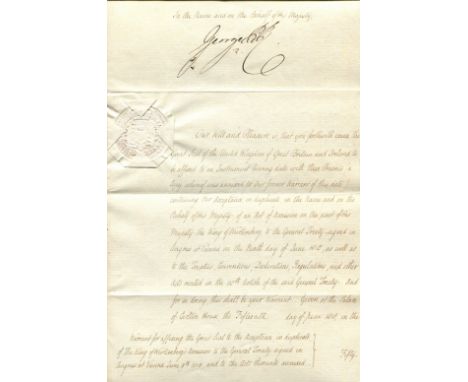 In the Name and on the Behalf of His Majesty.
George P R
Our Will and Pleasure is, that you forthwith cause the
Great Seal of the United Kingdom of Great Britain and Ireland to
be affixed to an Instrument bearing date with these Presents a
Copy whereof is annexed to Our former Warrant of this date
containing Our Acceptance in duplicate in the Name and on the
Behalf of His Majesty, of an Act of Accession on the part of His
Majesty the King of Wirtemberg to the General Treaty signed in
Congress at Vienna on the Ninth day of June 1815, as well as
to the Treaties, Conventions, Declarations, Regulations, and other
Acts recited in the Article of the said General Treaty. And
for so doing this shall be your Warrant. Given at the Palace
of Carlton House the Fifteenth day of June in the
Fifty
Warrant for affixing the Great Seal to the Acceptance, in duplicate
of The King of Wirtemberg's Accession to the General Treaty signed in
Congress at Vienna June 9th 1815, and to the Acts thereunto annexed